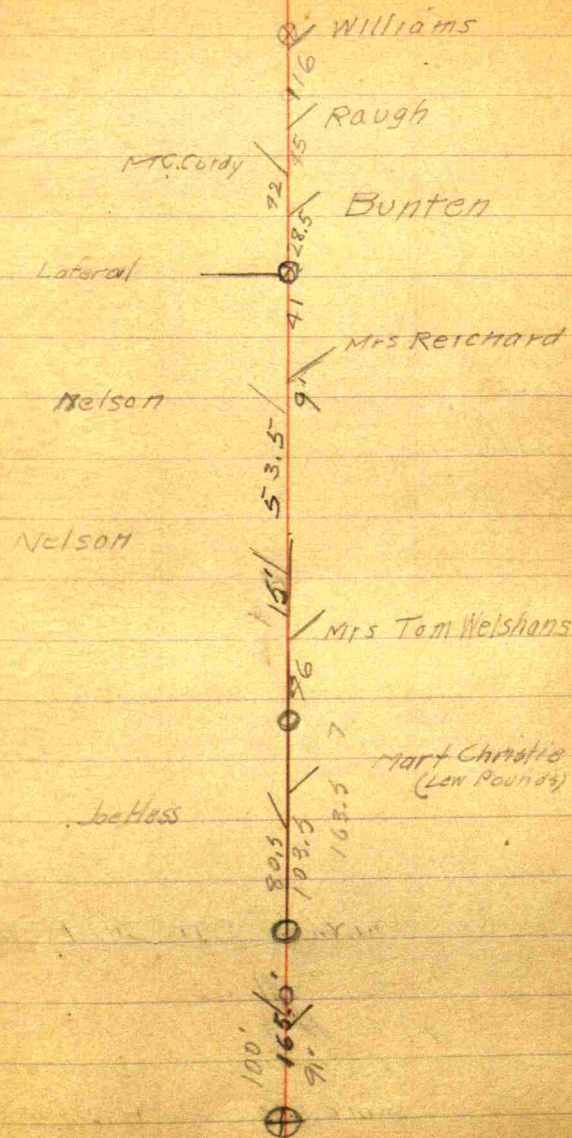 Williams
116
Raugh
45
McCurdy
72
Bunten
28.5
Lateral
41
Mrs Reichard
9'
Nelson
53.5
Nelson
15'
Mrs Tom Welshans
96
7
Mart Christie
(Lew Pounds)
Joe Hess
80.5
103.5
163.5
165.0'
100'
91'